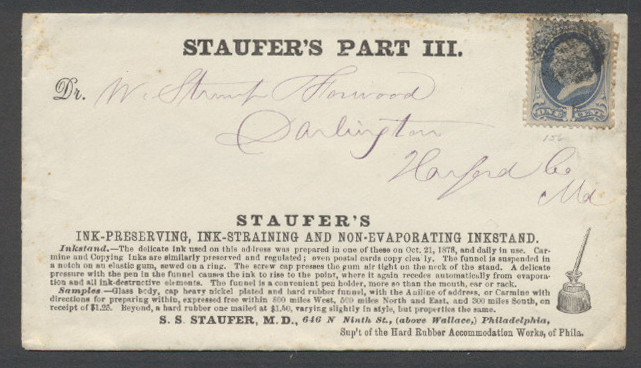 STAUFER'S PART III.
Dr. W. Stump Forwood
Darlington
Harford Co
Md
ONE CENT
156
STAUFER'S
INK-PRESERVING, INK-STRAINING AND NON-EVAPORATING INKSTAND.
Inkstand.—The delicate ink used on this address was prepared in one of these on Oct. 21, 1878, and daily in use. Car-
mine and Copying Inks are similarly preserved and regulated; even postal cards copy clearly. The funnel is suspended in
a notch on an elastic gum, sewed on a ring. The screw cap presses the gum air tight on the neck of the stand. A delicate
pressure with the pen in the funnel causes the ink to rise to the point, where it again recedes automatically from evapora-
tion and all ink-destructive elements. The funnel is a convenient pen holder, more so than the mouth, ear or rack.
Samples—Glass body, cap heavy nickel plated and hard rubber funnel, with the Aniline of address, or Carmine with
directions for preparing within, expressed free within 800 miles West, 500 miles North and East, and 300 miles South, on
receipt of $1.25. Beyond, a hard rubber one mailed at $1.50, varying slightly in style, but properties the same.
S. S. STAUFER, M. D., 646 N Ninth St., (above Wallace,) Philadelphia,
Sup't of the Hard Rubber Accommodation Works, of Phila.